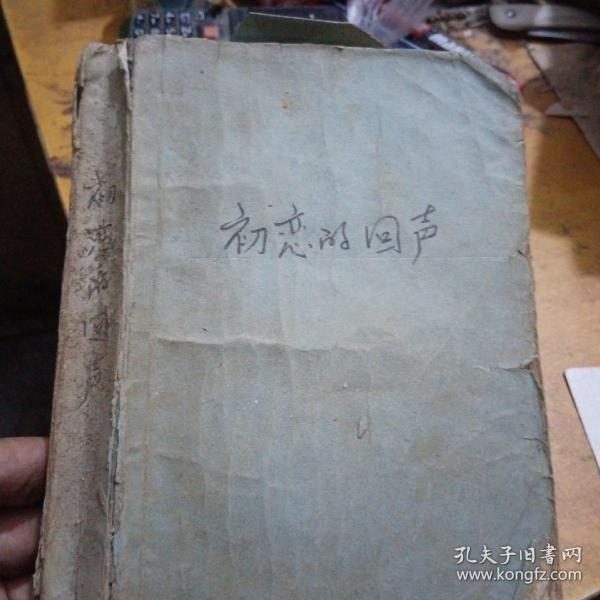 初恋的回声
初恋的回声
孔夫子旧書网
www.kongfz.com